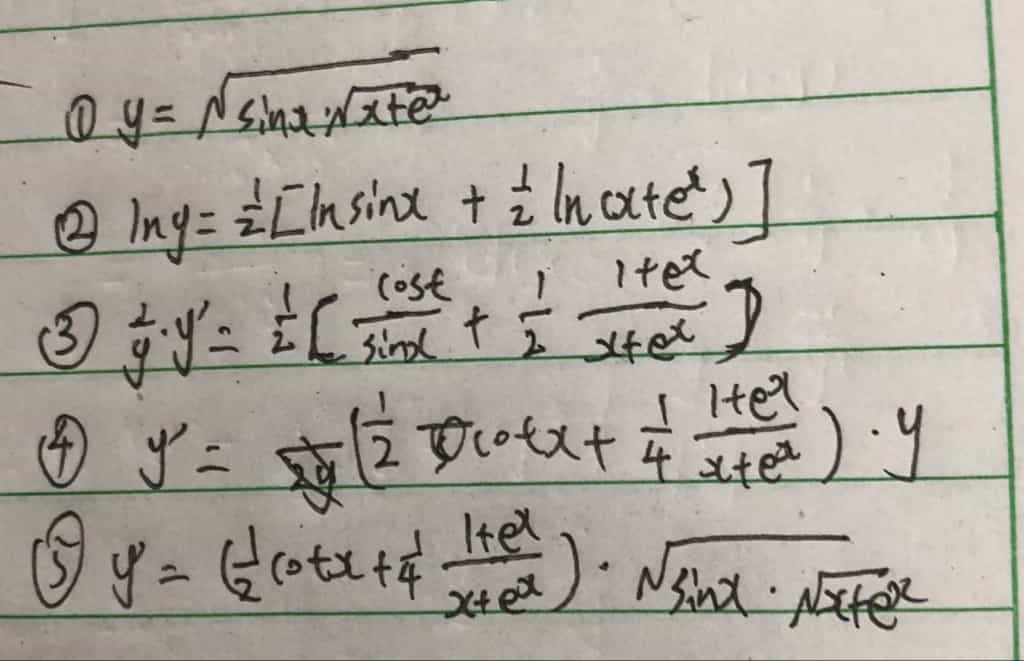 ① y = √(sinx·√(x+eˣ))
② lny = 1/2 [ln sinx + 1/2 ln(x+eˣ)]
③ 1/y · y' = 1/2 [cosx/sinx + 1/2 (1+eˣ)/(x+eˣ)]
④ y' = (1/2 cotx + 1/4 (1+eˣ)/(x+eˣ)) · y
⑤ y' = (1/2 cotx + 1/4 (1+eˣ)/(x+eˣ)) · √(sinx · √(x+eˣ))